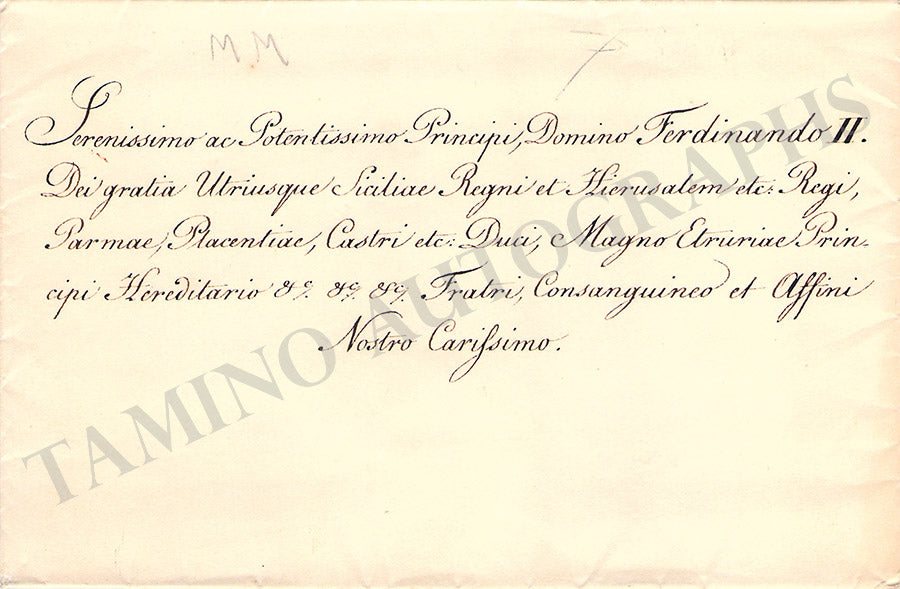 MM 7
Serenissimo ac Potentissimo Principi, Domino Ferdinando II.
Dei gratia Utriusque Siciliae Regni et Hierusalem etc: Regi,
Parmae, Placentiae, Castri etc: Duci, Magno Etruriae Prin-
cipi Hereditario &c. &c. &c. Fratri, Consanguineo et Affini
Nostro Cariſsimo.
TAMINO AUTOGRAPHS